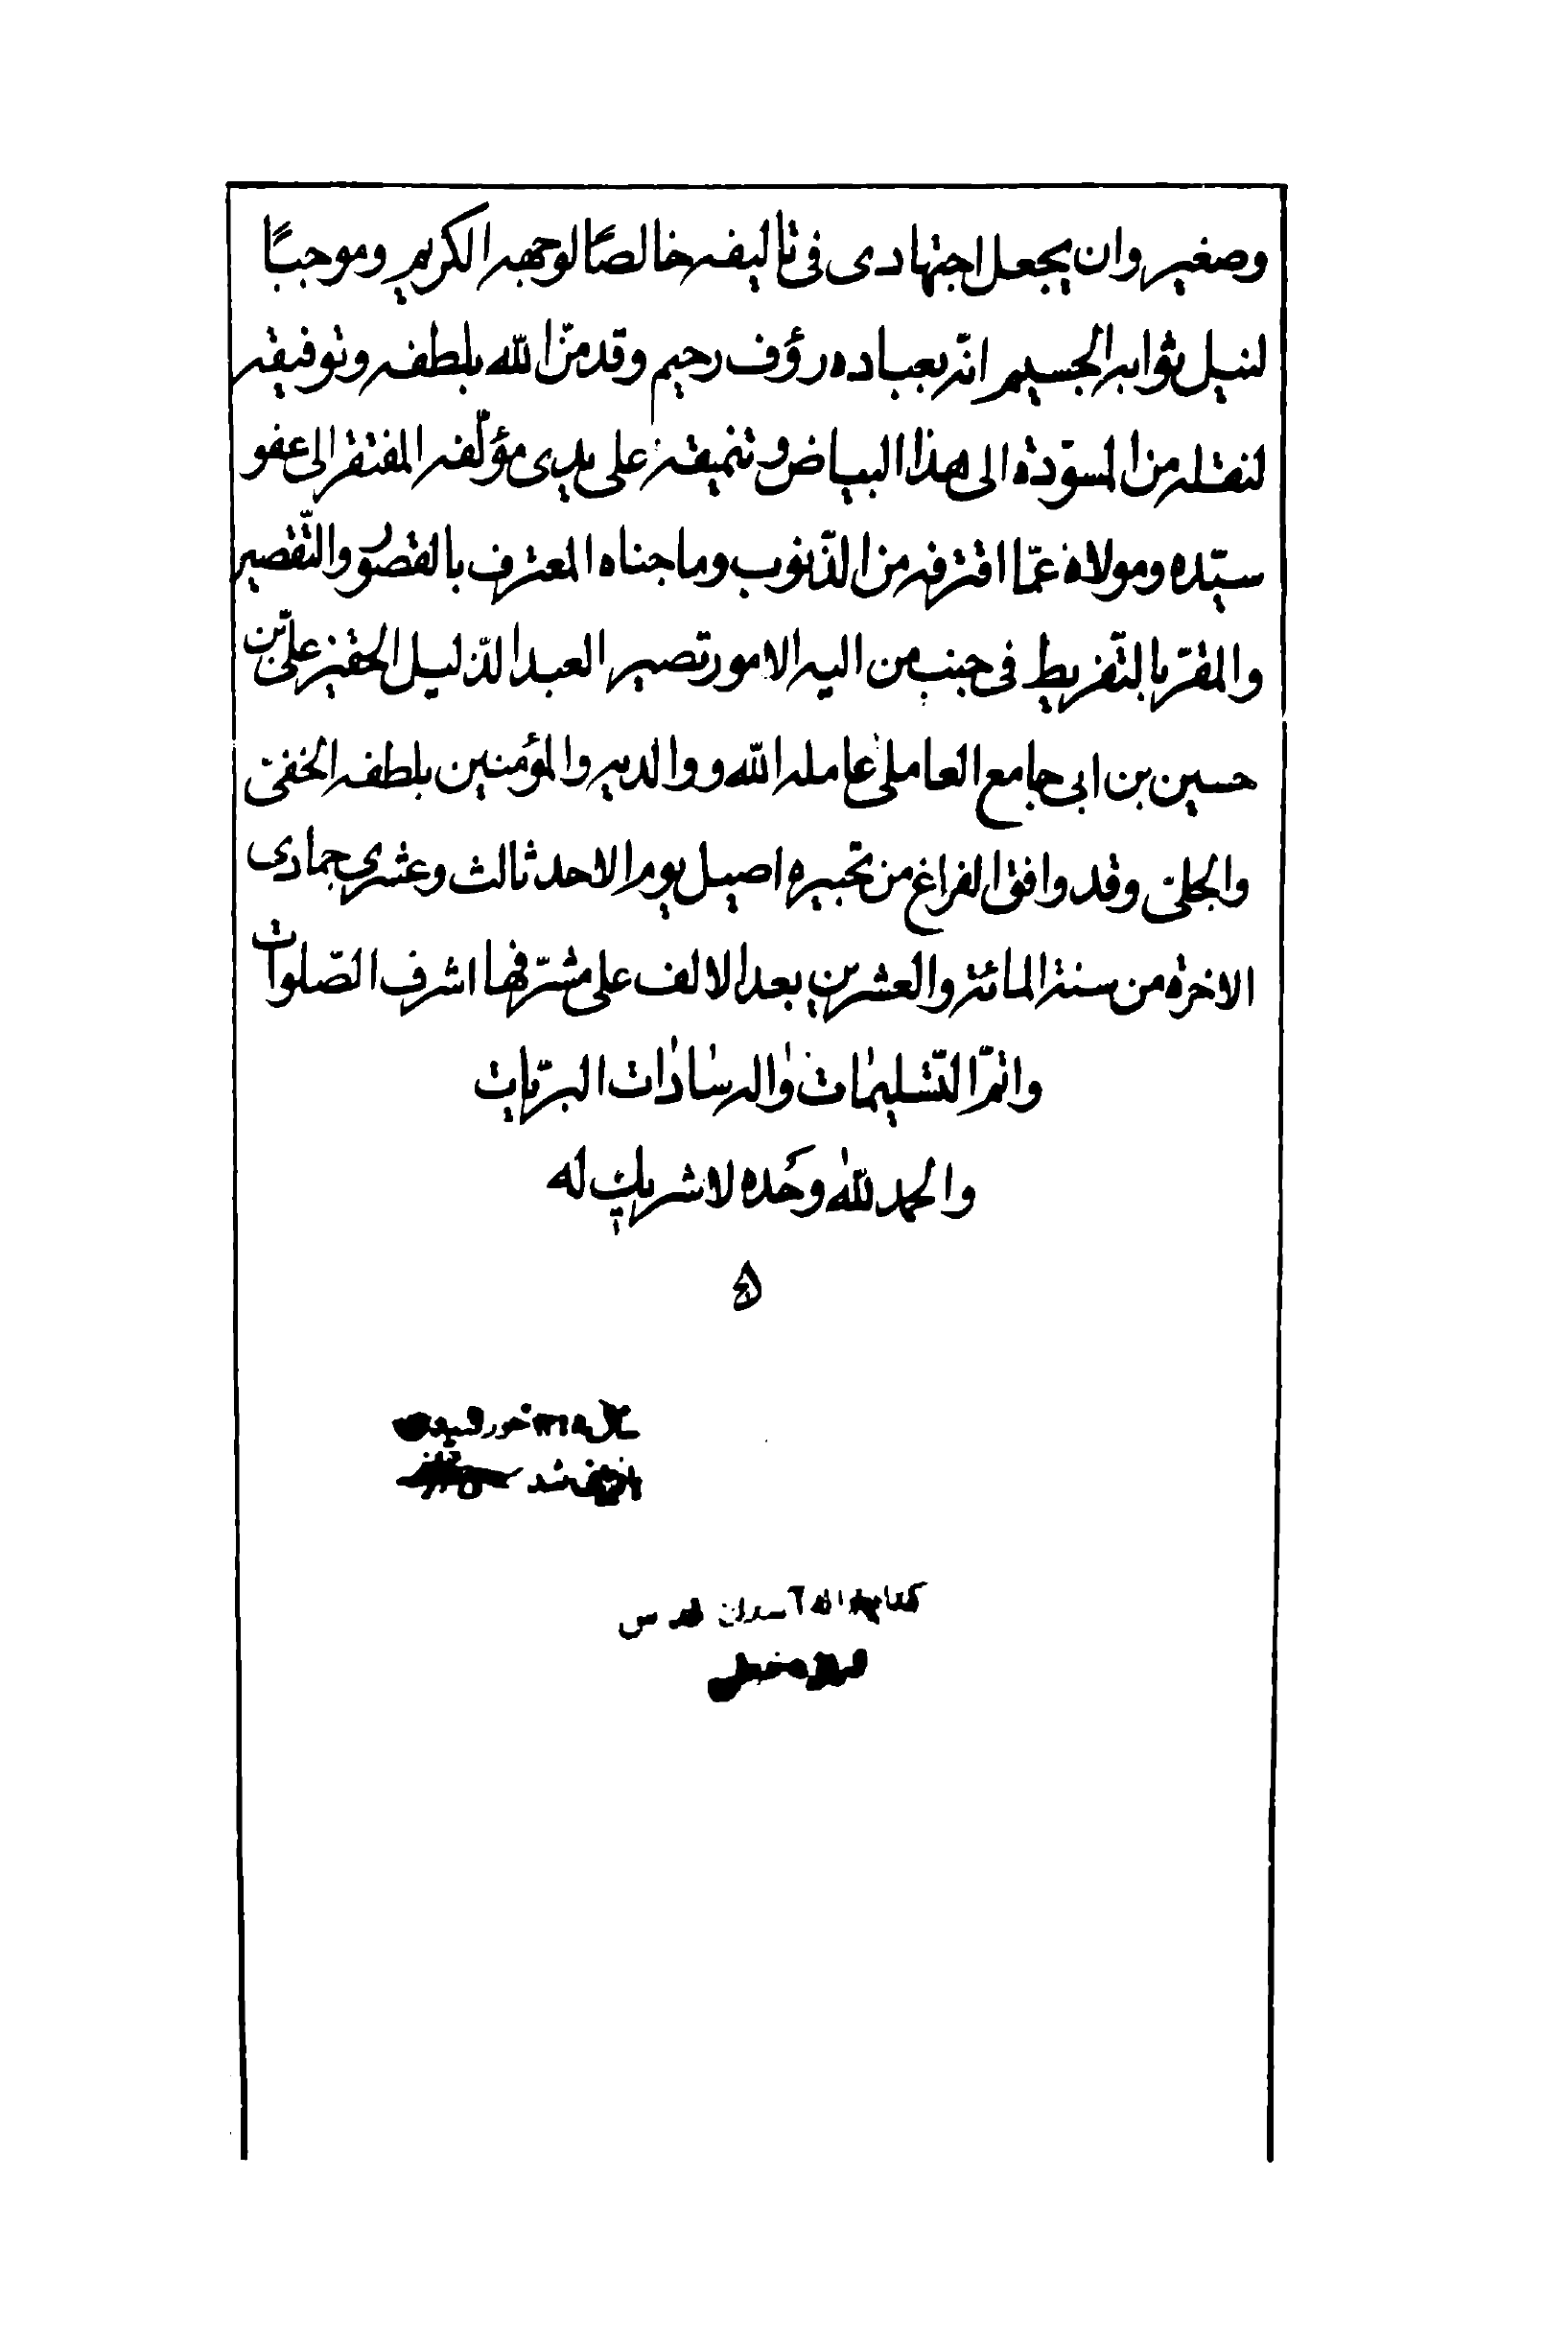 وصغير وان يجعل اجتهادى فى تاليفه خالصًا لوجهه الكريم وموجبًا
لنيل ثوابه الجسيم انّه بعباده رؤف رحيم وقد منّ الله بلطفه وتوفيقه
لنقله من المسوّدة الى هذا البياض وتنميقه على يدى مؤلّفه المفتقر الى عفو
سيّده ومولاه عمّا اقترفه من الذّنوب وما جناه المعترف بالقصور والتّقصير
والمقرّ بالتّفريط فى جنب من اليه الامور تصير العبد الذّليل الحقير علىّ بن
حسين بن ابى جامع العاملى عامله الله ووالديه والمؤمنين بلطفه الخفىّ
والجلىّ وقد وافق الفراغ من تحبيره اصيل يوم الاحد ثالث وعشرى جمادى
الاخرة من سنة المائة والعشرين بعد الالف على مشرّفها اشرف الصّلوات
واتمّ التّسليمات واله سادات البريّات
والحمد لله وحده لا شريك له
ه
شد
قدس